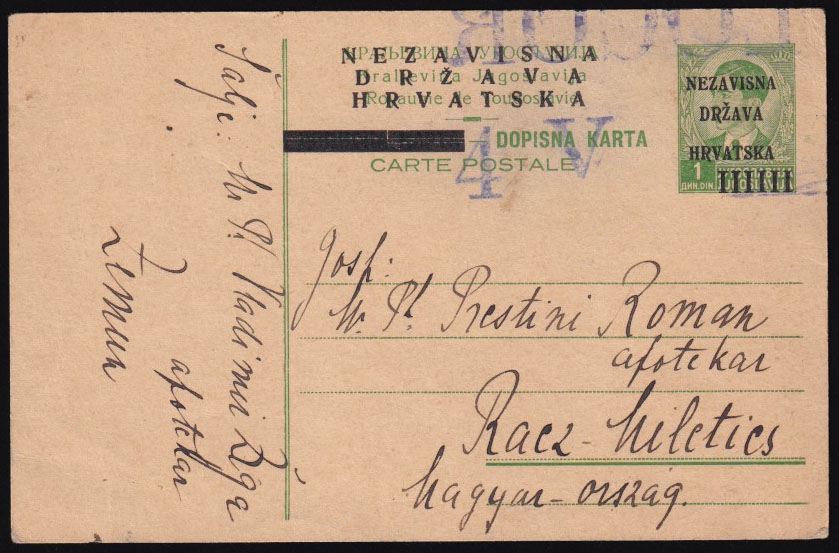 КРАЉЕВИНА ЈУГОСЛАВИЈА
Kraljevina Jugoslavija
Royaume de Yougoslavie
NEZAVISNA
DRŽAVA
HRVATSKA
DOPISNA KARTA
CARTE POSTALE
NEZAVISNA
DRŽAVA
HRVATSKA
1
ДИН. DIN.
4 V
Šalje: Mr. Ph. Vladimir Žiga
apotekar
Zemun
Gosp:
Mr. Ph. Prestini Roman
apotekar
Racz-Miletics
Magyar-ország.